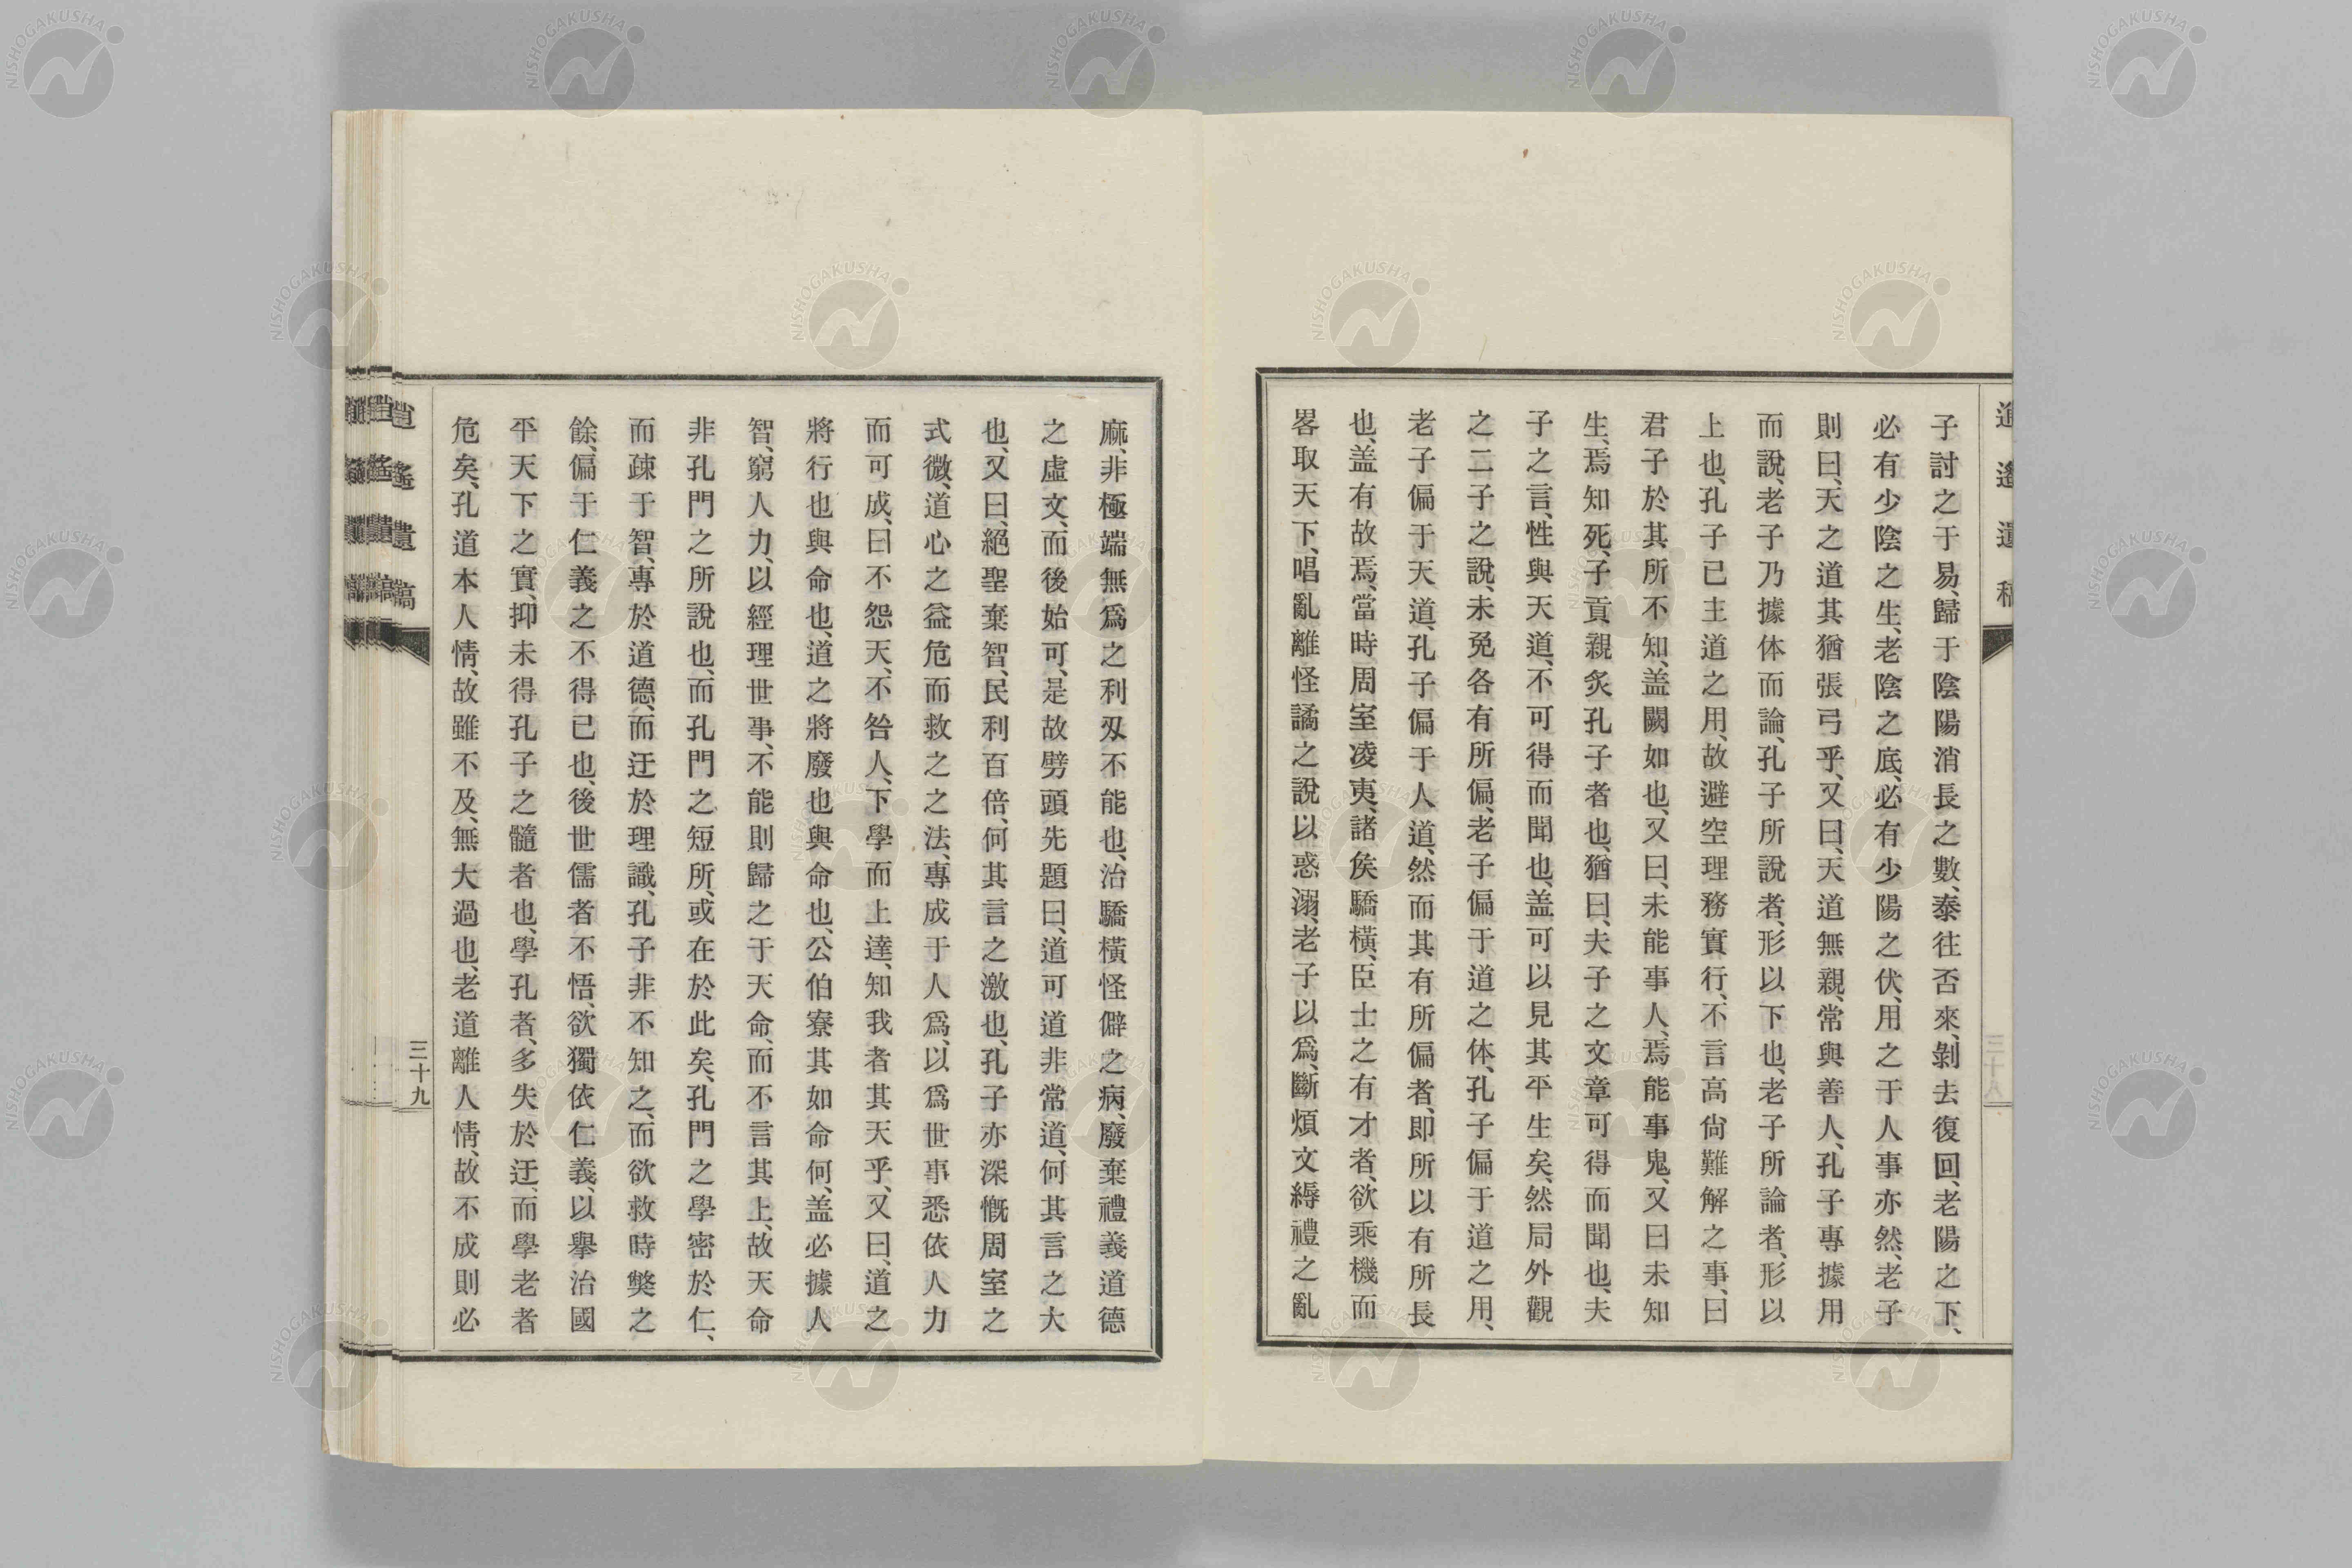 逍遙遺稿
子討之于易、歸于陰陽消長之數、泰往否來、剝去復回、老陽之下、
必有少陰之生、老陰之底、必有少陽之伏、用之于人事亦然、老子
則曰、天之道其猶張弓乎、又曰、天道無親、常與善人、孔子專據用
而說、老子乃據体而論、孔子所說者、形以下也、老子所論者、形以
上也、孔子已主道之用、故避空理務實行、不言高尙難解之事、曰
君子於其所不知、盖闕如也、又曰、未能事人、焉能事鬼、又曰未知
生、焉知死、子貢親炙孔子者也、猶曰、夫子之文章可得而聞也、夫
子之言、性與天道、不可得而聞也、盖可以見其平生矣、然局外觀
之二子之說、未免各有所偏、老子偏于道之体、孔子偏于道之用、
老子偏于天道、孔子偏于人道、然而其有所偏者、即所以有所長
也、盖有故焉、當時周室凌夷、諸矦驕橫、臣士之有才者、欲乘機而
畧取天下、唱亂離怪譎之說以惑溺、老子以爲、斷煩文縟禮之亂
麻、非極端無爲之利刄不能也、治驕橫怪僻之病、廢棄禮義道德
之虛文、而後始可、是故劈頭先題曰、道可道非常道、何其言之大
也、又曰、絕聖棄智、民利百倍、何其言之激也、孔子亦深慨周室之
式微、道心之益危而救之之法、專成于人爲、以爲世事悉依人力
而可成、曰不怨天、不咎人、下學而上達、知我者其天乎、又曰、道之
將行也與命也、道之將廢也與命也、公伯寮其如命何、盖必據人
智、窮人力、以經理世事、不能則歸之于天命、而不言其上、故天命
非孔門之所說也、而孔門之短所、或在於此矣、孔門之學密於仁、
而疎于智、專於道德、而迂於理識、孔子非不知之、而欲救時獘之
餘、偏于仁義之不得已也、後世儒者不悟、欲獨依仁義、以擧治國
平天下之實、抑未得孔子之髓者也、學孔者、多失於迂、而學老者
危矣、孔道本人情、故雖不及、無大過也、老道離人情、故不成則必
逍遙遺稿
三十九